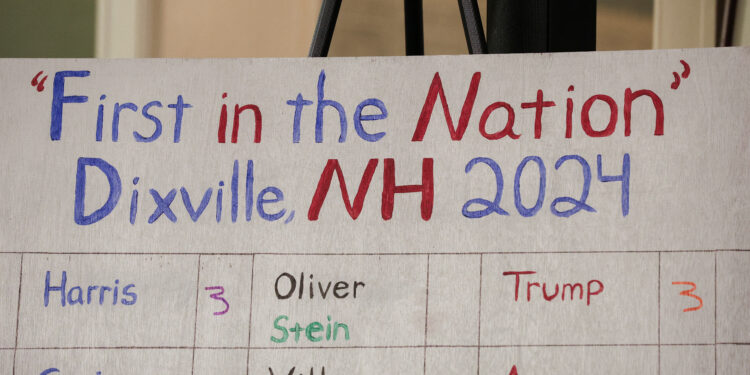 "First in the Nation"
Dixville, NH 2024
Harris 3 Oliver Trump 3
Stein